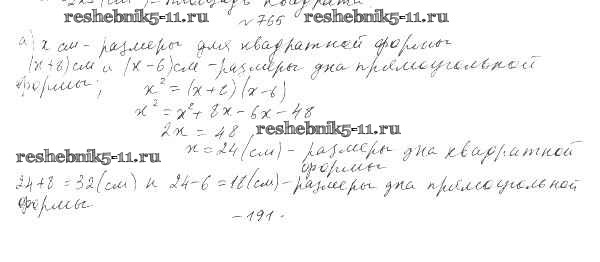 reshebnik5-11.ru № 765 reshebnik5-11.ru
а) x см - размеры для квадратной формы
(x+8) см и (x-6) см - размеры дна прямоугольной
формы;
x² = (x+8)(x-6)
x² = x² + 8x - 6x - 48
2x = 48 reshebnik5-11.ru
reshebnik5-11.ru x = 24 (см) - размеры дна квадратной
формы
24+8 = 32 (см) и 24-6 = 18 (см) - размеры дна прямоугольной
формы
- 191 -